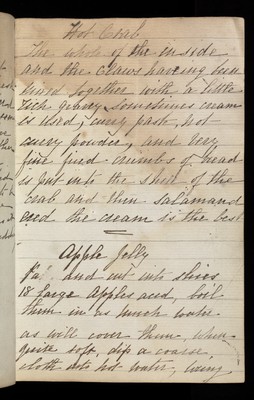 Hot Crab
The whole of the inside
and the claws having been
mixed together with a little
rich gravy, sometimes cream
is used, curry paste, not
curry powder, and very
fine fried crumbs of bread
is put into the shell of the
crab and then salamand
ered the cream is the best
Apple Jelly
Pare and cut into slices
18 large Apples acid, boil
them in as much water
as will cover them, when
quite soft, dip a coarse
cloth into hot water, wring